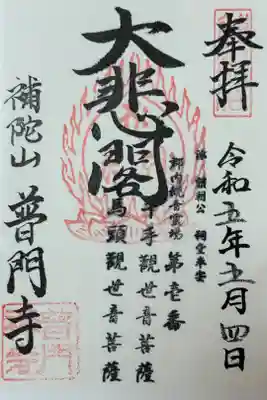 奉拝
令和五年五月四日
祠堂奉安
郡内観音霊場 第壱番
千手観世音菩薩
馬頭観世音菩薩
大悲閣
補陀山 普門寺